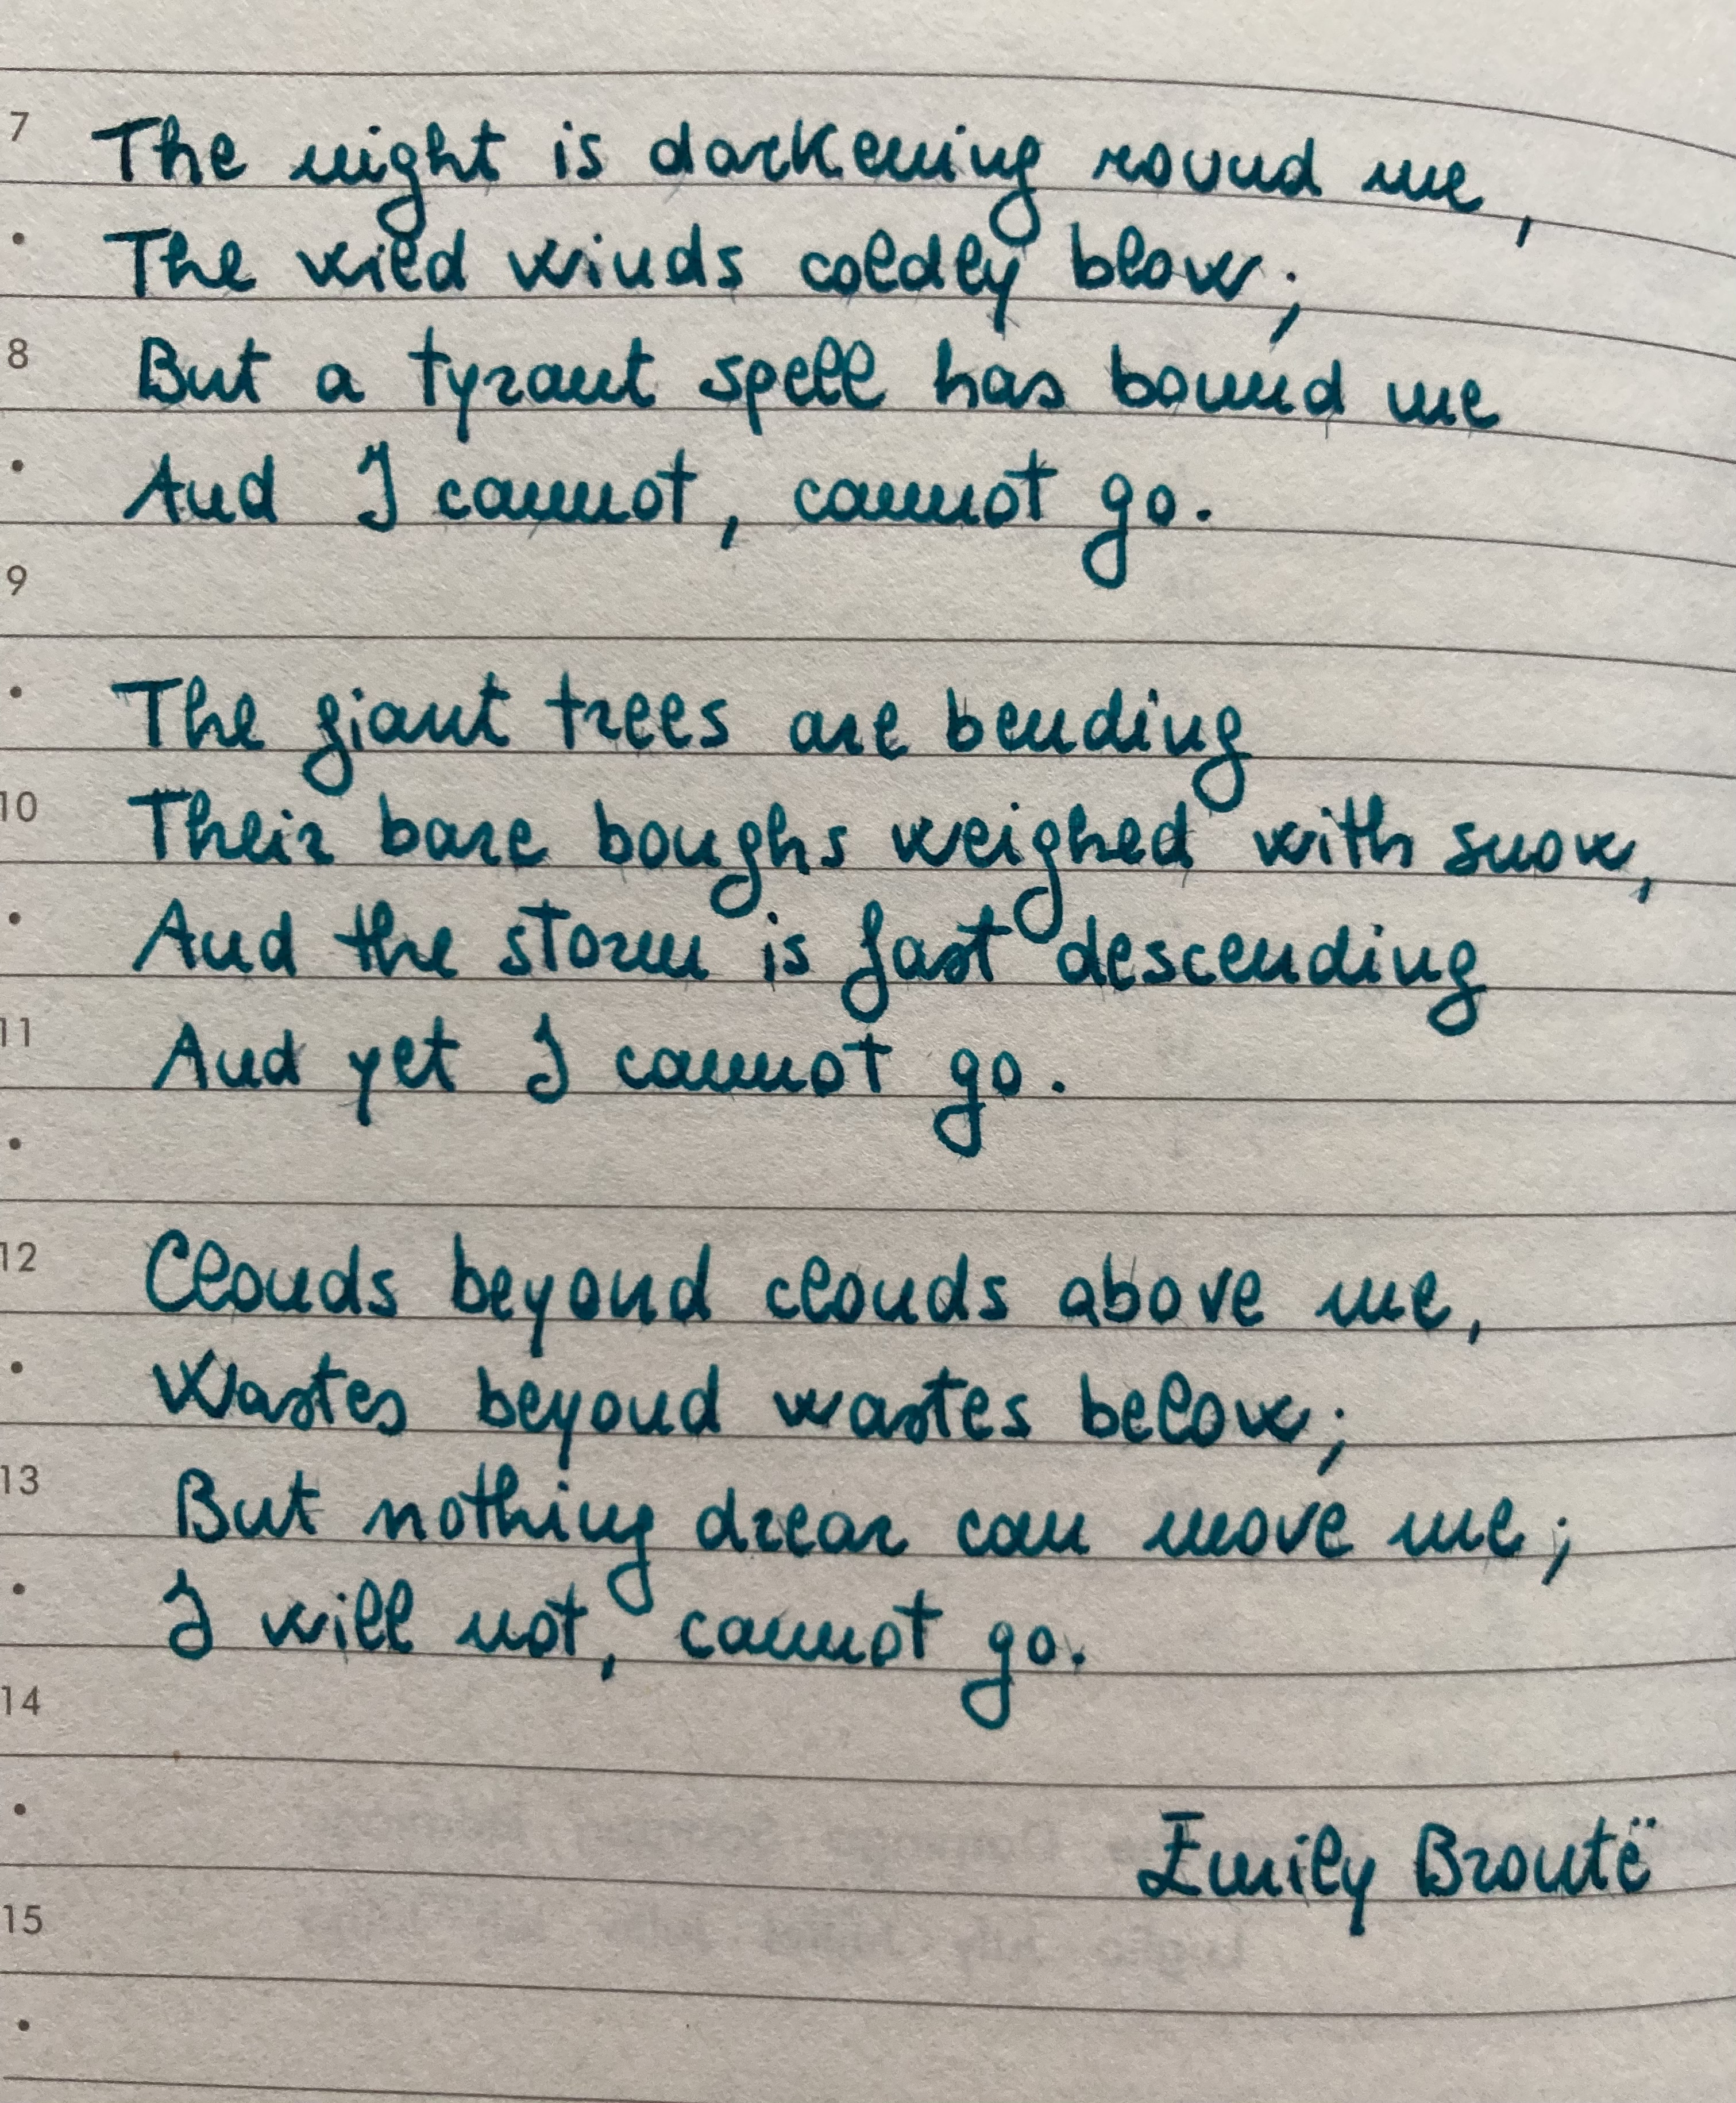 7 The night is darkening round me,
• The wild winds coldly blow;
8 But a tyrant spell has bound me
• And I cannot, cannot go.
9
• The giant trees are bending
10 Their bare boughs weighed with snow,
• And the storm is fast descending
11 And yet I cannot go.
•
12 Clouds beyond clouds above me,
• Wastes beyond wastes below;
13 But nothing drear can move me;
• I will not, cannot go.
14
• Emily Brontë
15
•